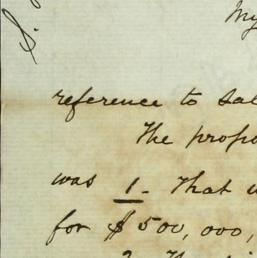 My
S.
reference to sal
The propo
was 1. That w
for $500,000,
2. Th